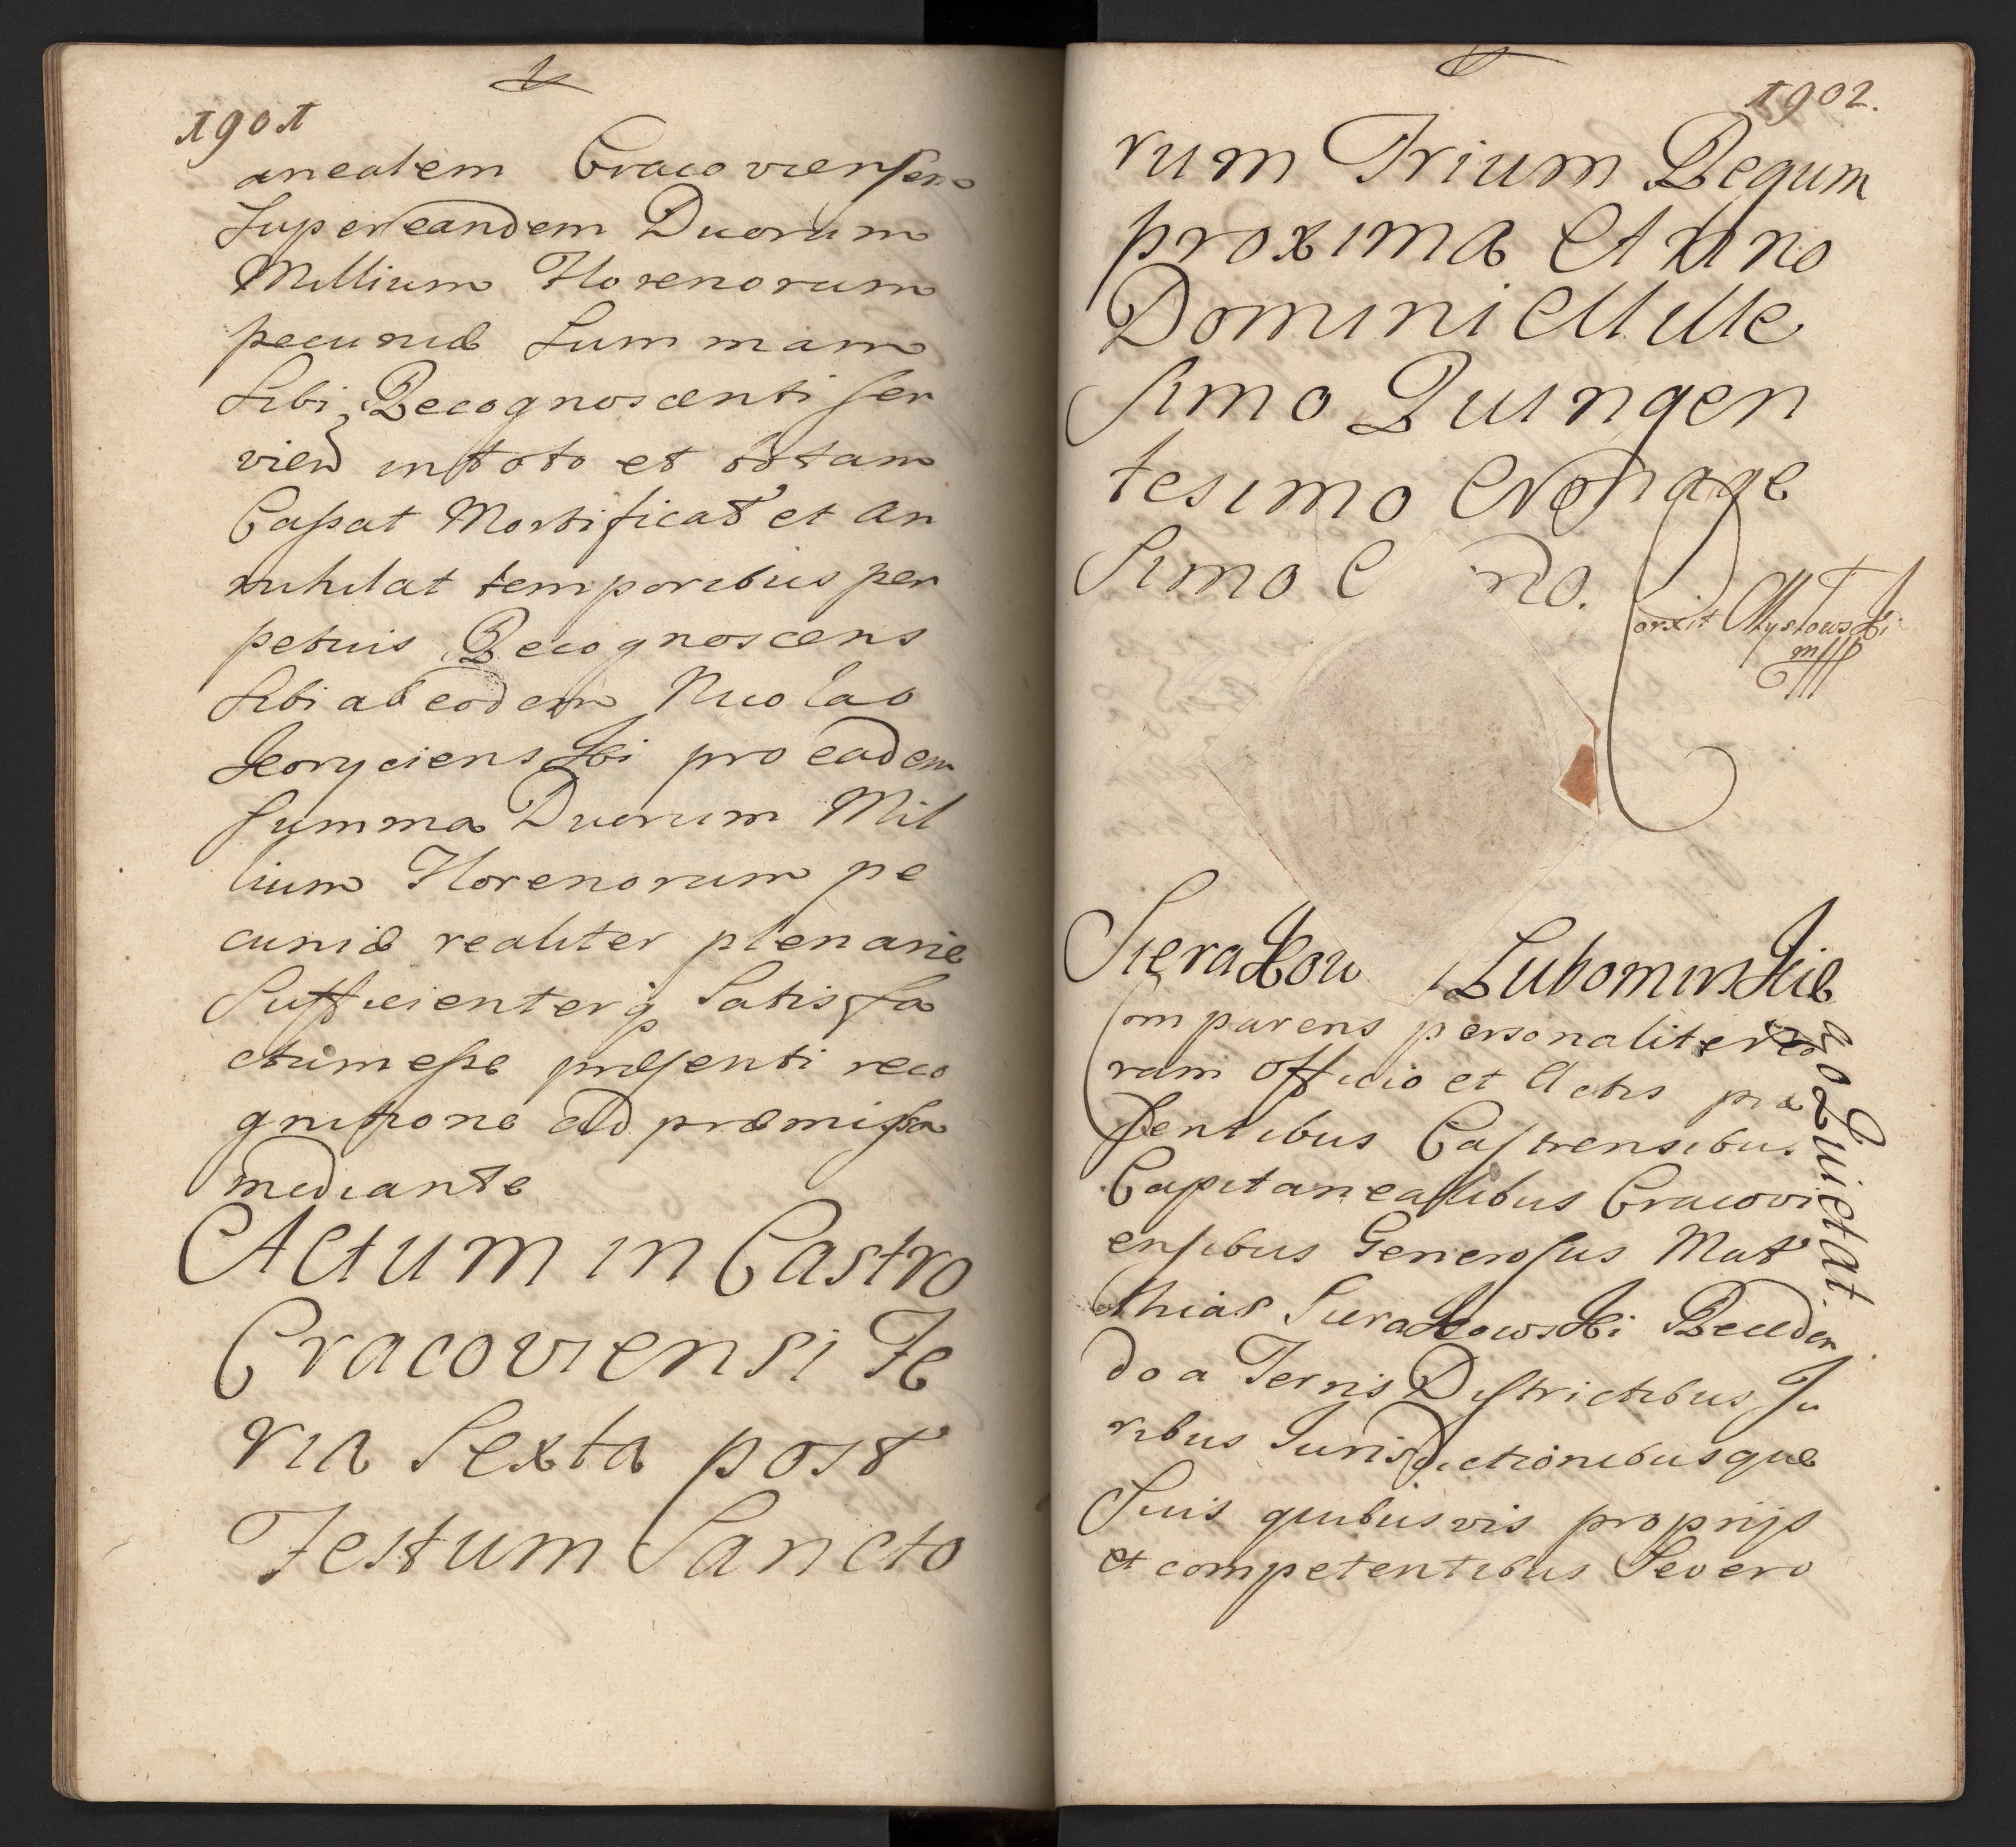 1901
aneatem Cracoviensem
super eandem Duorum
Millium Florenorum
pecuniæ Summam
Sibi Recognoscenti ser
vien in toto et totam
Cassat Mortificat et an
nihilat temporibus per
petuis Recognoscens
Sibi ab eodem Nicolao
Jeoryciensski pro eadem
Summa Duorum Mil
lium Florenorum pe
cuniæ realiter plenarie
Sufficienterq Satisfa
ctum esse præsenti reco
gnitione ad præmissa
mediante
Actum in Castro
Cracoviensi Fe
ria Sexta post
Festum Sancto
1902.
rum Trium Regum
proxima Anno
Domini Mille
simo Quingen
tesimo Nonage
simo do.
orxit Mystowski
mpp
Sierakow Lubomirskie
go Quietat.
Comparens personaliter co
ram Officio et Actis præ
sentibus Castrensibus
Capitanealibus Cracovi
ensibus Generosus Mat
thias Sierakowski Receden
do a Terris Districtibus Ju
ribus Jurisdictionibusque
Suis quibusvis proprijs
et competentibus Severo